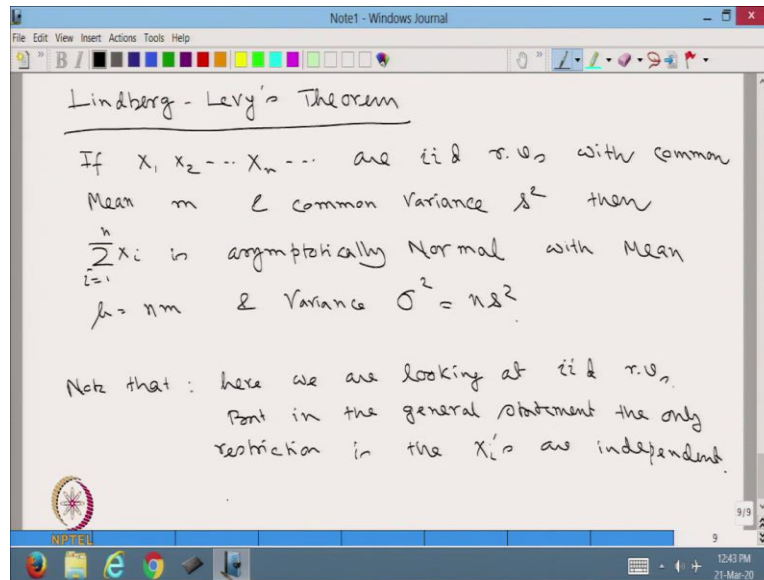 Note1 - Windows Journal
File Edit View Insert Actions Tools Help
B I
Lindberg - Levy's Theorem
If X₁ X₂ --- Xₙ --- are iid r.vs with common
Mean m & common Variance s² then
∑ᵢ₌₁ⁿ xᵢ is asymptotically Normal with Mean
μ = nm & Variance σ² = ns².
Note that : here we are looking at iid r.vs.
But in the general statement the only
restriction is the Xᵢ's are independent.
9/9
NPTEL
9
12:43 PM
21-Mar-20